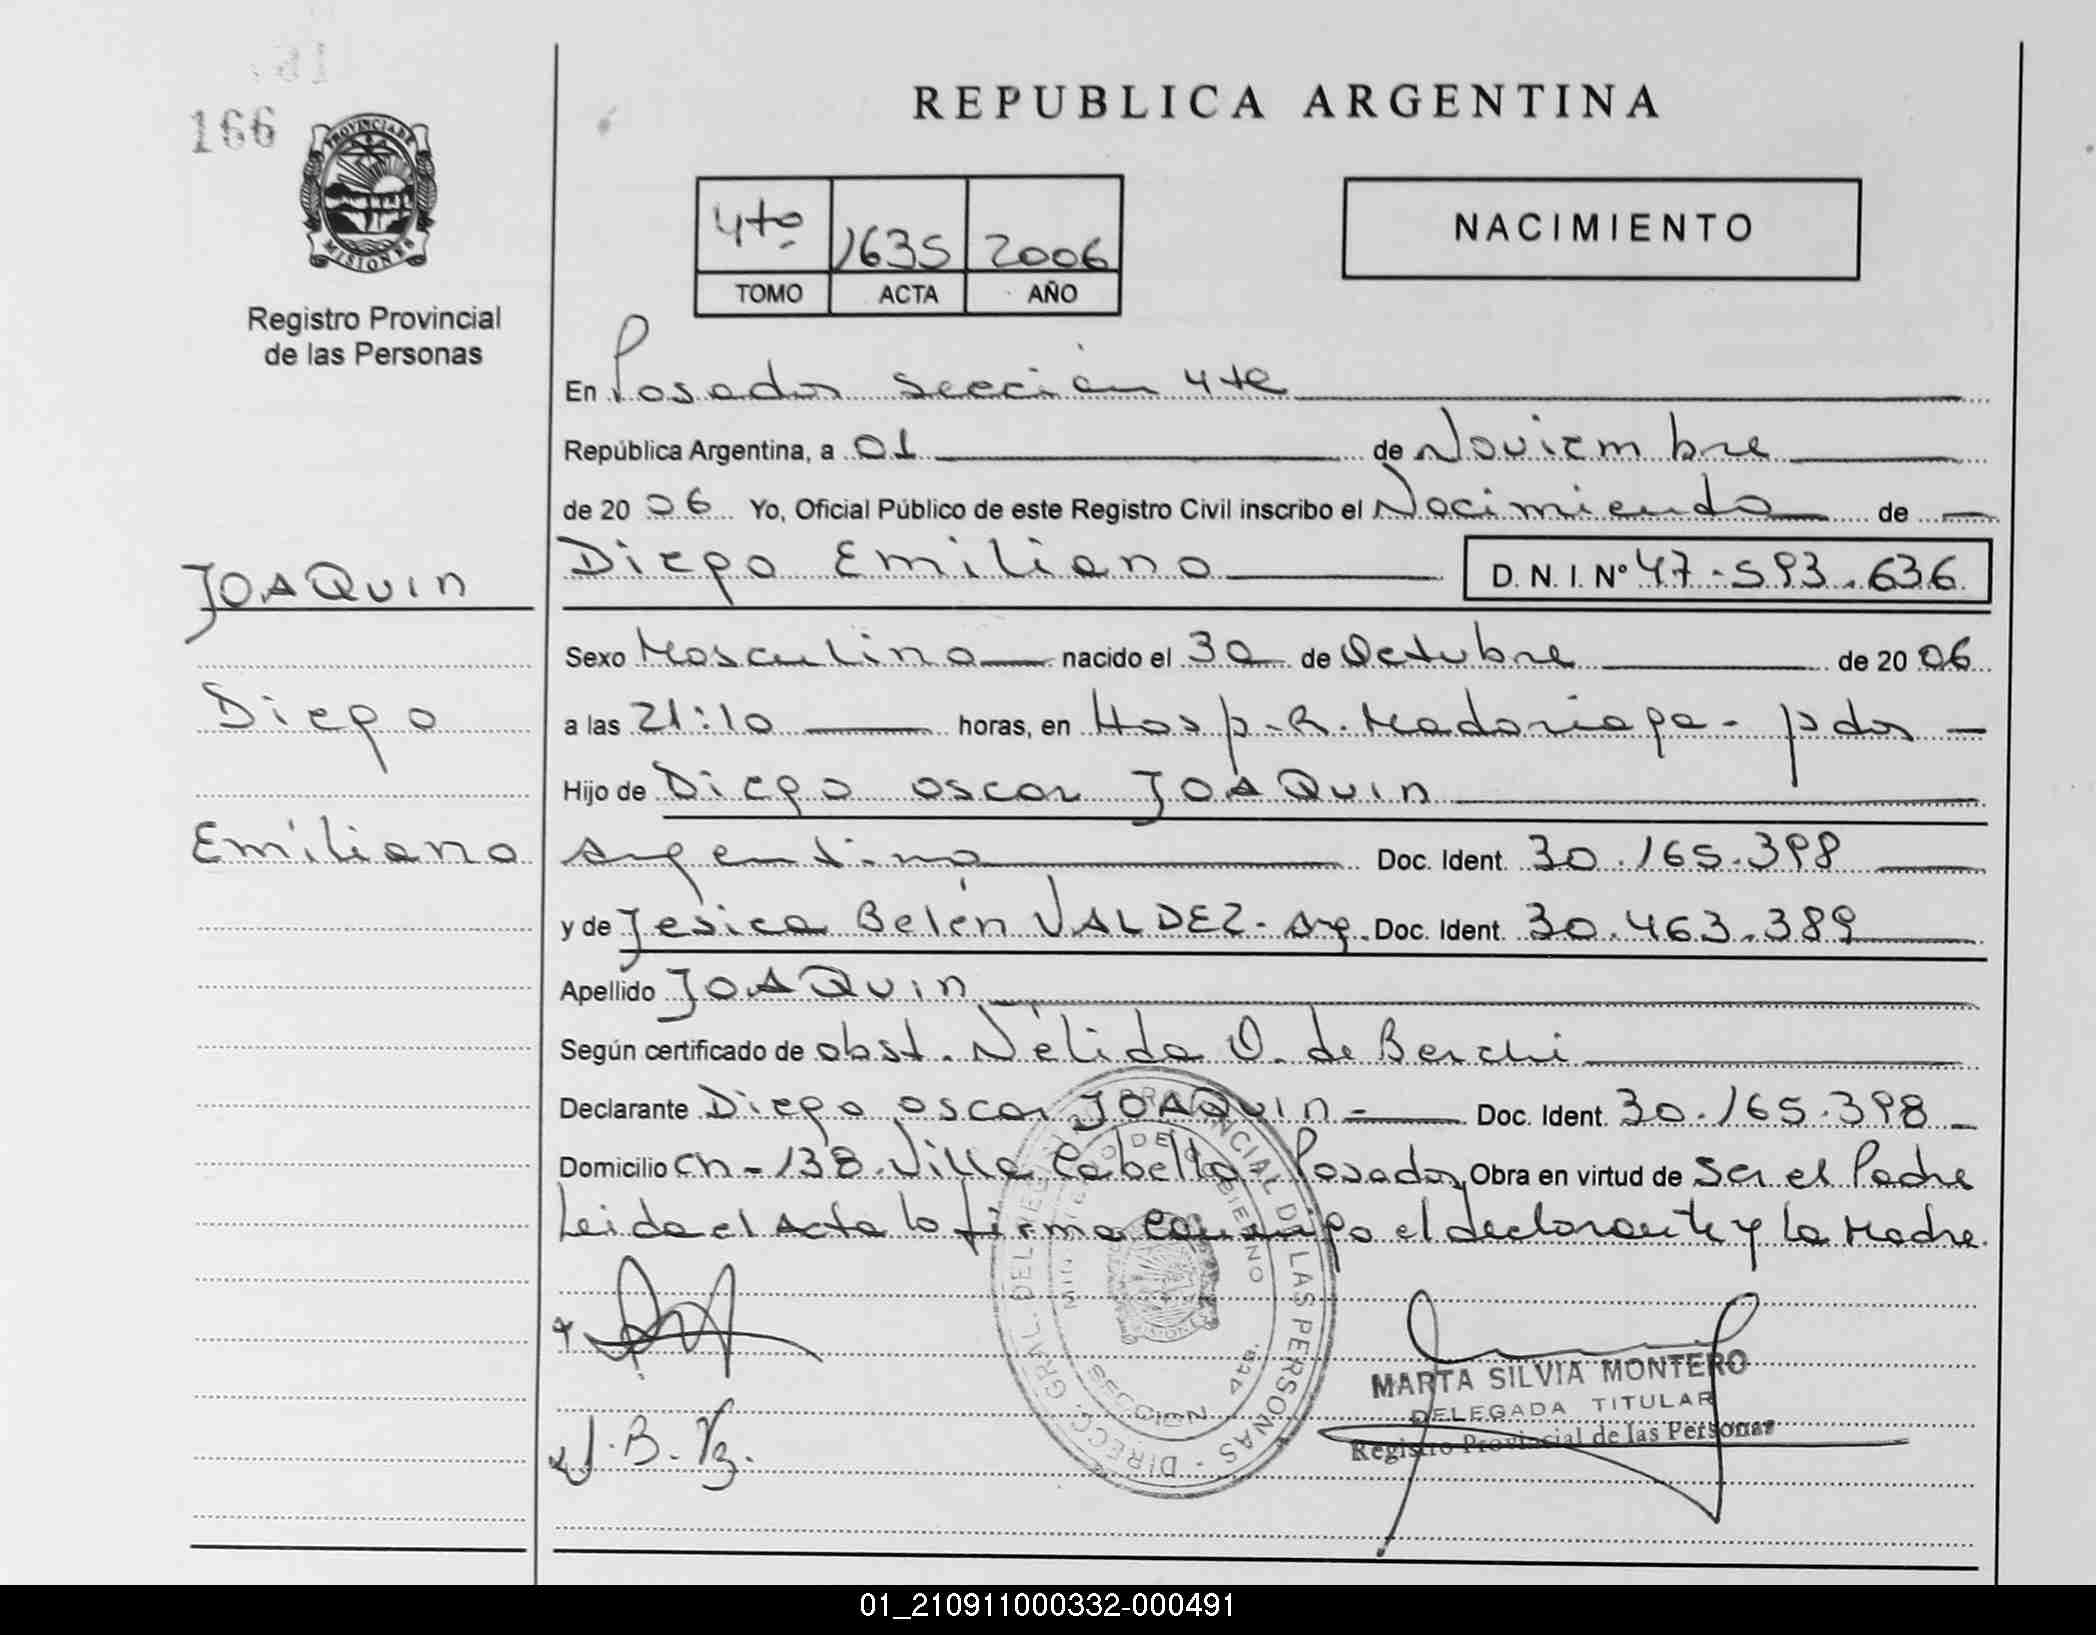 166
PROVINCIA DE
MISIONES
Registro Provincial
de las Personas
REPUBLICA ARGENTINA
4to 1635 2006
TOMO ACTA AÑO
NACIMIENTO
En Posadas sección 4ta
República Argentina, a 01 de Noviembre
de 2006 Yo, Oficial Público de este Registro Civil inscribo el Nacimiento de
Diego Emiliano D. N. I. Nº 47-593.636
JOAQUIN
Sexo Masculino nacido el 30 de Octubre de 2006
Diego
a las 21:10 horas, en Hosp. R. Madariaga - pdas
Hijo de Diego oscar JOAQUIN
Emiliano
Argentino Doc. Ident. 30.165.398
y de Jésica Belén VALDEZ - Arg. Doc. Ident. 30.463.389
Apellido JOAQUIN
Según certificado de obst. Nélida O. de Berchi
Declarante Diego oscar JOAQUIN - Doc. Ident. 30.165.398
Domicilio ch - 138 - Villa Cabello - Posadas Obra en virtud de ser el Padre
Leida el Acta la firma conmigo el declarante y la Madre.
DIRECC. GRAL. DEL REGISTRO PROVINCIAL DE LAS PERSONAS
MINISTERIO DE GOBIERNO
SECCION 4ta.
J.B.Vz.
MARTA SILVIA MONTERO
DELEGADA TITULAR
Registro Provincial de las Personas
01_210911000332-000491